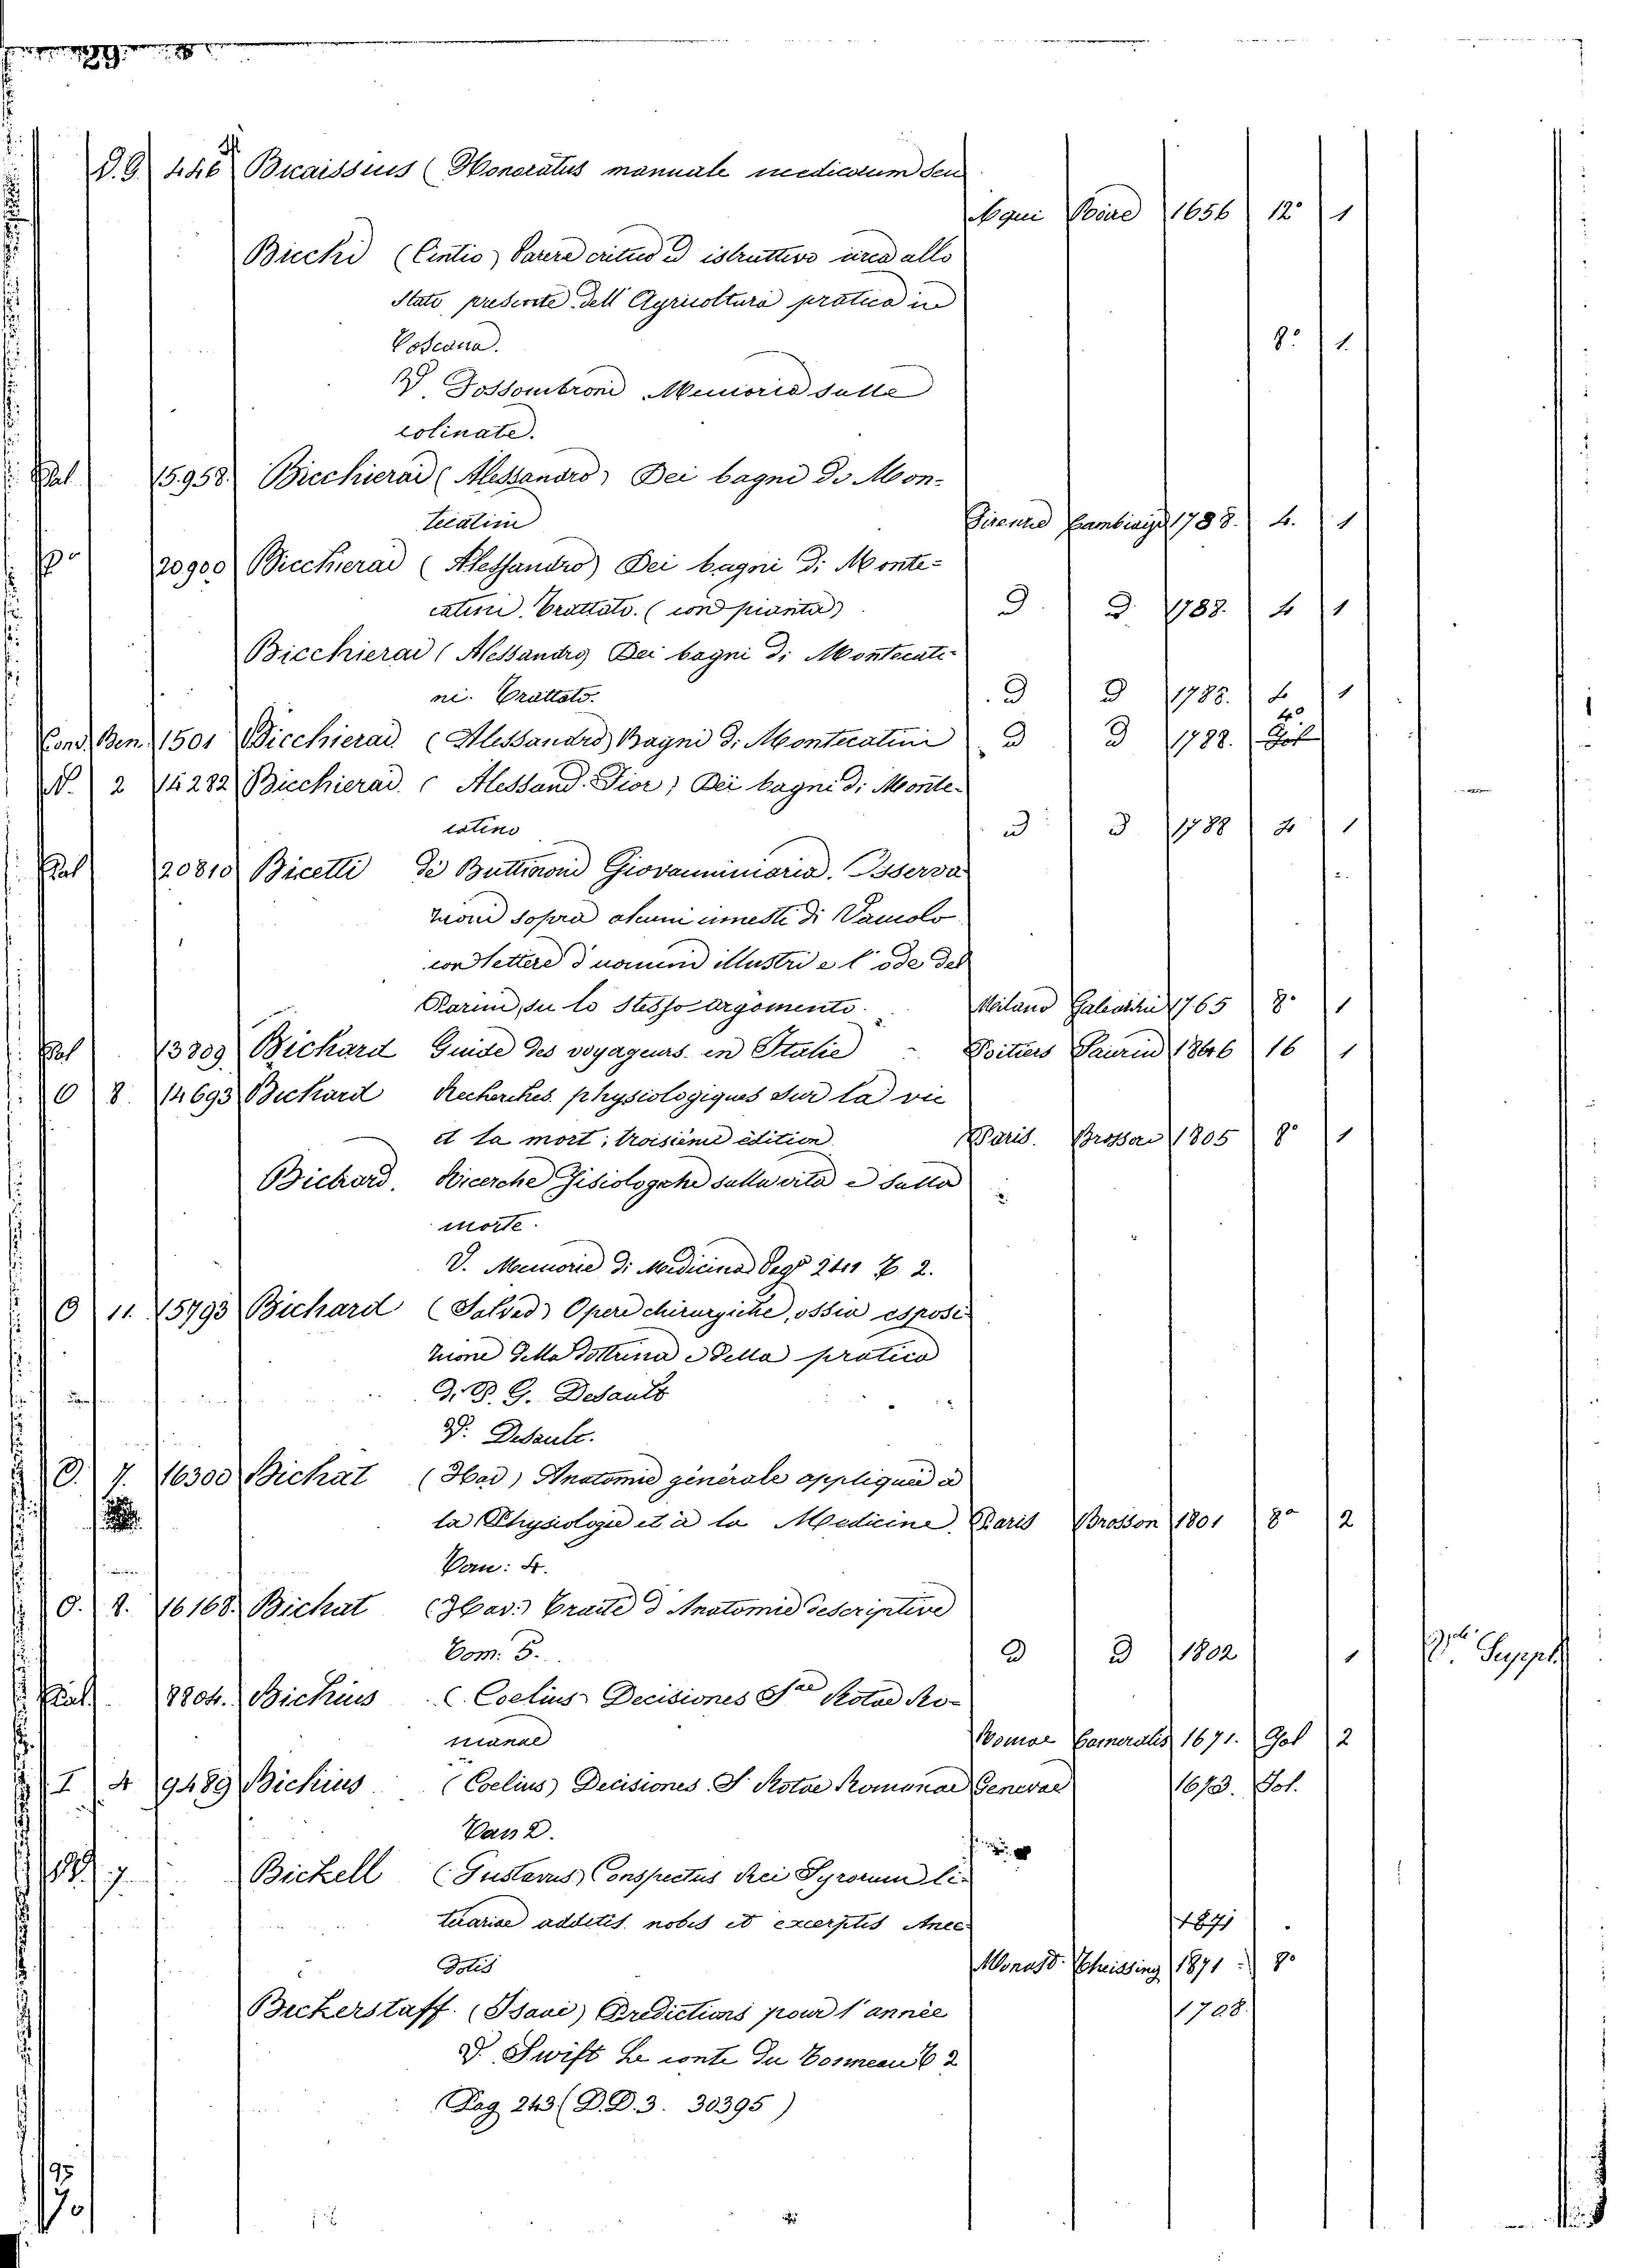 D.G. 446 Bicaissius (Honoratus manuale medicorum seu
Aqui 1656 12° 1
Bicchi (Cintio) Parere critico ed istruttivo circa allo
Stato presente dell'Agricoltura pratica in
Toscana. 8° 1
V. Fossombroni Memoria sulle
colinate.
Pal 15958 Bicchierai (Alessandro) Dei bagni di Mon-
tecatini Firenze Cambiagi 1788. 4. 1
20900 Bicchierai (Alessandro) Dei bagni di Monte-
catini. Trattato. (con pianta) D. D. 1788. 4 1
Bicchierai (Alessandro) Dei bagni di Montecati-
ni. Trattato. D D 1788. 4 1
Cond. Ben. 1501 Bicchierai (Alessandro) Bagni di Montecatini D D 1788.
N. 2 14282 Bicchierai (Alessand. Fior) Dei bagni di Monte-
catino D D 1788 4 1
Pal 20810 Bicetti De Buttinoni Giovannimaria. Osserva
zioni sopra alcuni innesti di Vaiuolo
con lettere d'uomini illustri e l'ode del
Parini, su lo stesso argomento. Milano Galeazzi 1765 8° 1
Pal 13809 Bichard Guide des voyageurs en Italie Poitiers Saurin 1846 16 1
O 8. 14693 Bichard Recherches physiologiques sur la vie
et la mort; troisième édition Paris. Brosson 1805 8° 1
Bichard. Ricerche Fisiologiche sulla vita e sulla
morte.
V. Memorie di Medicina Pag. 241 T 2.
O 11. 15793 Bichard Opere chirurgiche, ossia esposi
zione della dottrina e della pratica
di P. G. Desault
V. Desault.
O. 7. 16300 Bichat (Hav) Anatomie générale appliquée à
la Physiologie et à la Medicine. Paris Brosson 1801 8° 2
Tom: 4.
O. 8. 16168. Bichat (Hav.) Traité d'Anatomie descriptive
Tom: 5. D D 1802 1 Suppl
Pal. 8804. Bichius (Coelius Decisiones Sae Rotae Ro-
manae Romae Cameralis 1671. Fol 2
I 4 9489 Bichius (Coelius) Decisiones S. Rotae Romanae Genevae 1673. Fol.
Tom 2.
7 Bickell (Gustavus) Conspectus Rei Syrorum li-
terariae additis notis et excerptis Anec 1871
dotis Monast. Theissing 1871 8°
Bickerstaff (Isaac) Predictions pour l'année 1708.
V. Swift Le conte du Tonneau T 2
Pag 243 (D.D.3. 30395)